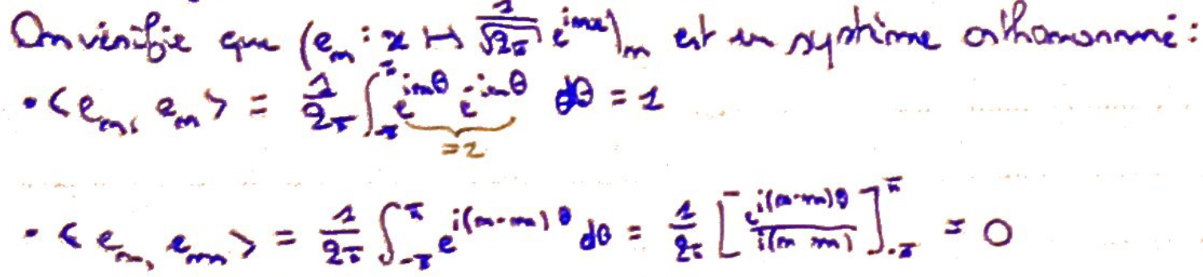 On vérifie que (e_n : x ↦ 1/√(2π) e^{inx})_n est un système orthonormé :
• <e_n, e_n> = 1/2π ∫_{-π}^{π} e^{inθ} e^{-inθ} dθ = 1
= 1
• <e_n, e_m> = 1/2π ∫_{-π}^{π} e^{i(n-m)θ} dθ = 1/2π [e^{i(n-m)θ} / i(n-m)]_{-π}^{π} = 0